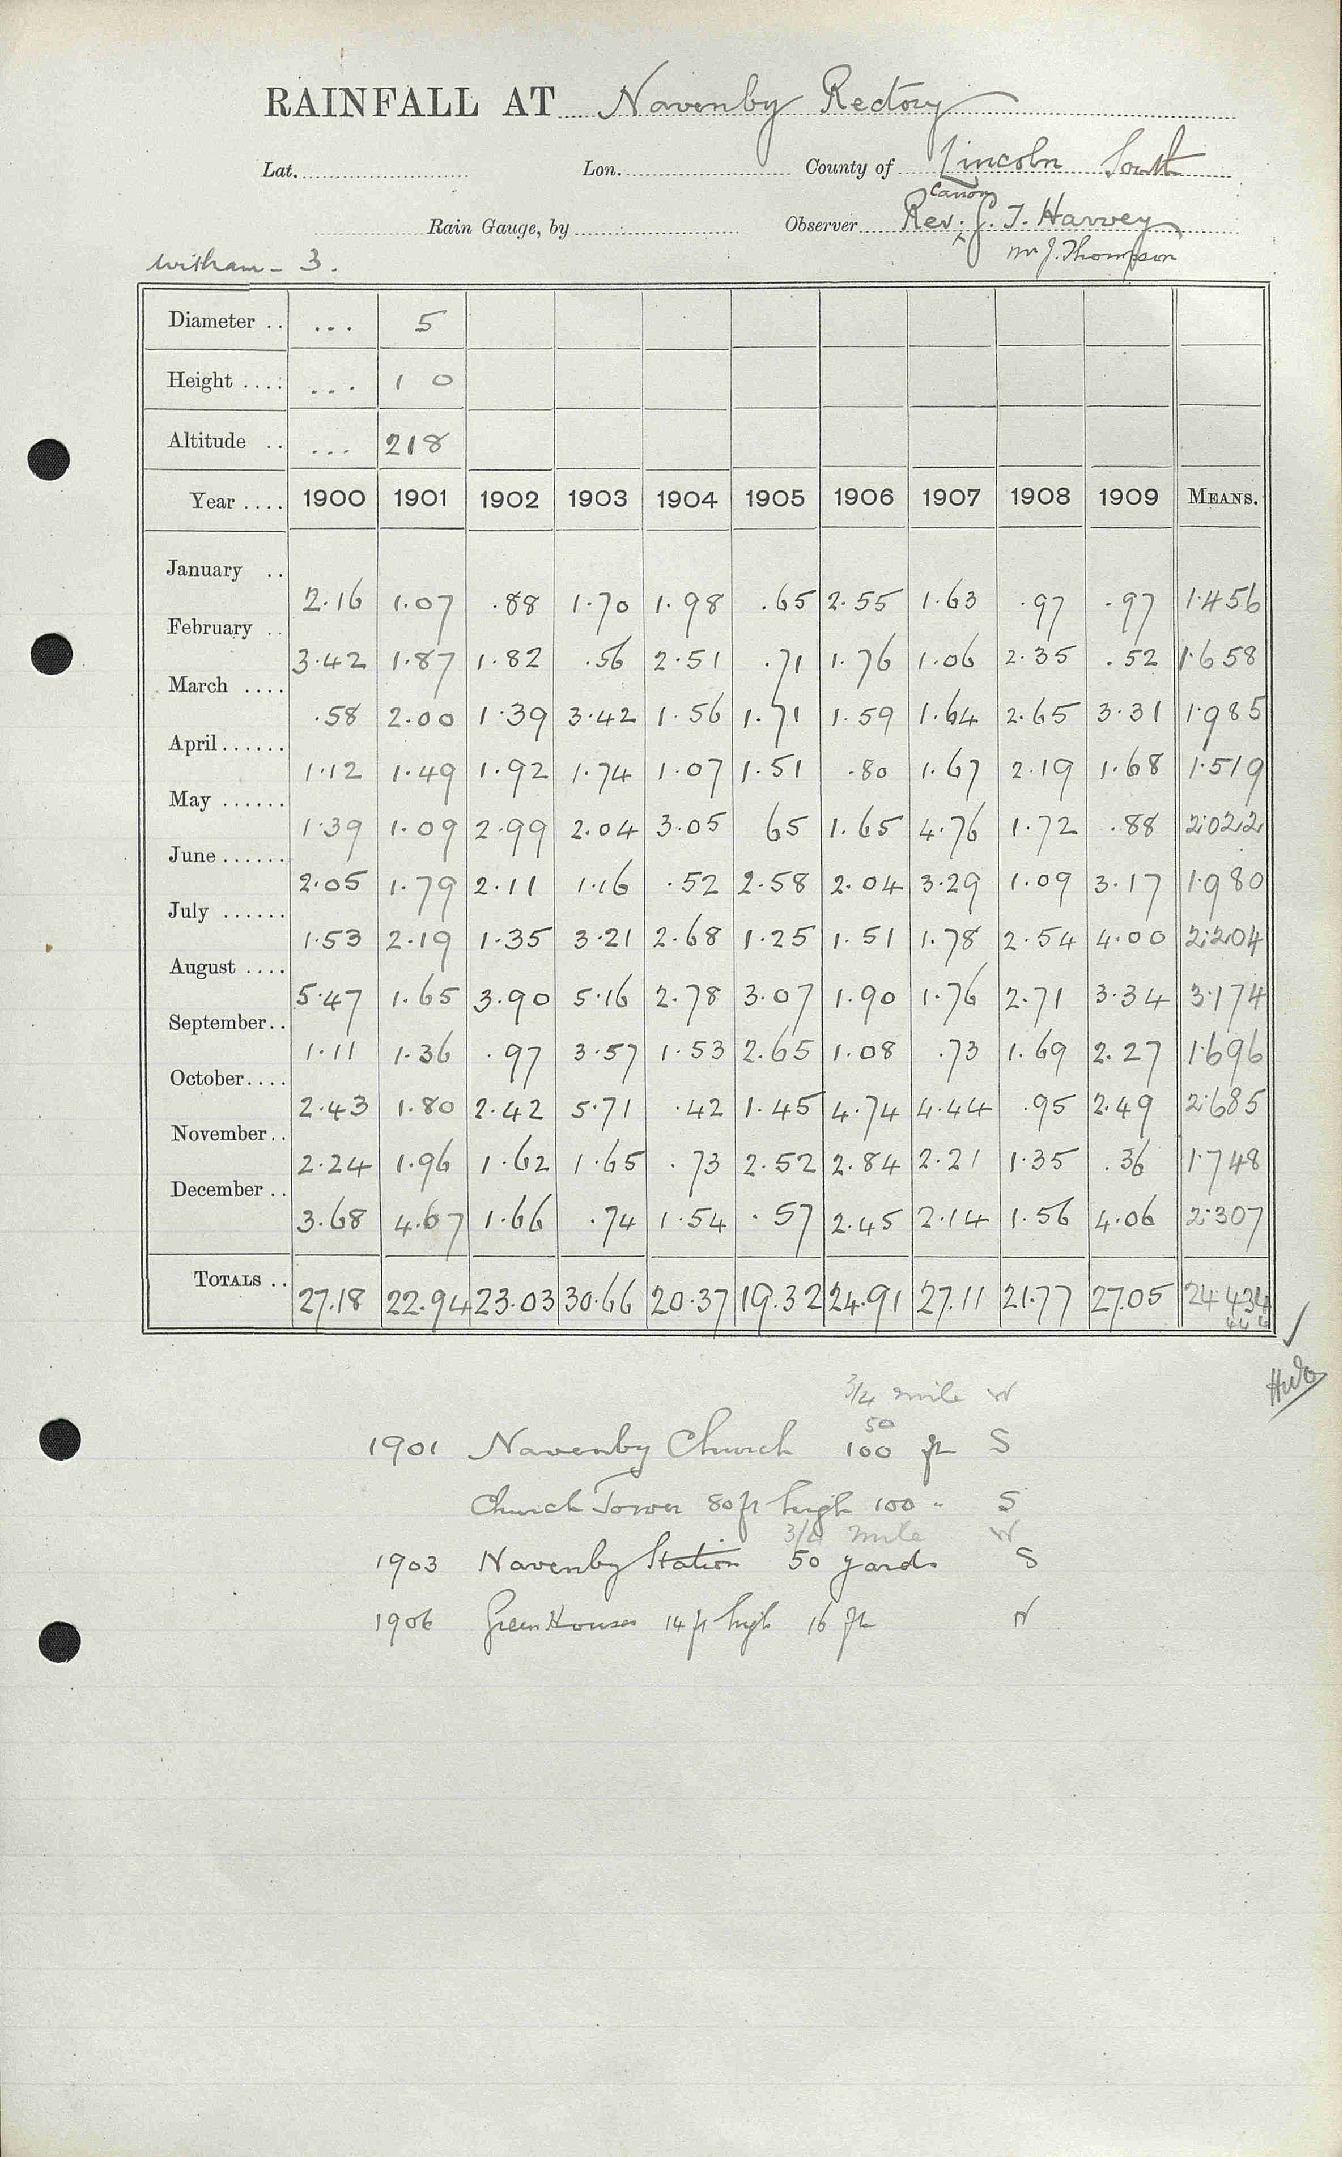 RAINFALL AT Navenby Rectory
Lat. Lon. County of Lincoln South
Canon
Rain Gauge, by Observer Rev. J. T. Harvey
Mr J. Thompson
Witham - 3.
Diameter .. ... 5
Height .... ... 1 0
Altitude .. ... 218
Year .... 1900 1901 1902 1903 1904 1905 1906 1907 1908 1909 MEANS.
January .. 2.16 1.07 .88 1.70 1.98 .65 2.55 1.63 .97 .97 1.456
February .. 3.42 1.87 1.82 .56 2.51 .71 1.76 1.06 2.35 .52 1.658
March .... .58 2.00 1.39 3.42 1.56 1.71 1.59 1.64 2.65 3.31 1.985
April...... 1.12 1.49 1.92 1.74 1.07 1.51 .80 1.67 2.19 1.68 1.519
May ...... 1.39 1.09 2.99 2.04 3.05 65 1.65 4.76 1.72 .88 2.022
June ...... 2.05 1.79 2.11 1.16 .52 2.58 2.04 3.29 1.09 3.17 1.980
July ...... 1.53 2.19 1.35 3.21 2.68 1.25 1.51 1.78 2.54 4.00 2.204
August .... 5.47 1.65 3.90 5.16 2.78 3.07 1.90 1.76 2.71 3.34 3.174
September.. 1.11 1.36 .97 3.57 1.53 2.65 1.08 .73 1.69 2.27 1.696
October.... 2.43 1.80 2.42 5.71 .42 1.45 4.74 4.44 .95 2.49 2.685
November.. 2.24 1.96 1.62 1.65 .73 2.52 2.84 2.21 1.35 .36 1.748
December .. 3.68 4.67 1.66 .74 1.54 .57 2.45 2.14 1.56 4.06 2.307
TOTALS .. 27.18 22.94 23.03 30.66 20.37 19.32 24.91 27.11 21.77 27.05 24.434
3/4 mile W
50
1901 Navenby Church 100 ft S
Church Tower 80 ft high 100 " S
3/4 mile W
1903 Navenby Station 50 yards S
1906 Green Houses 14 ft high 16 ft N